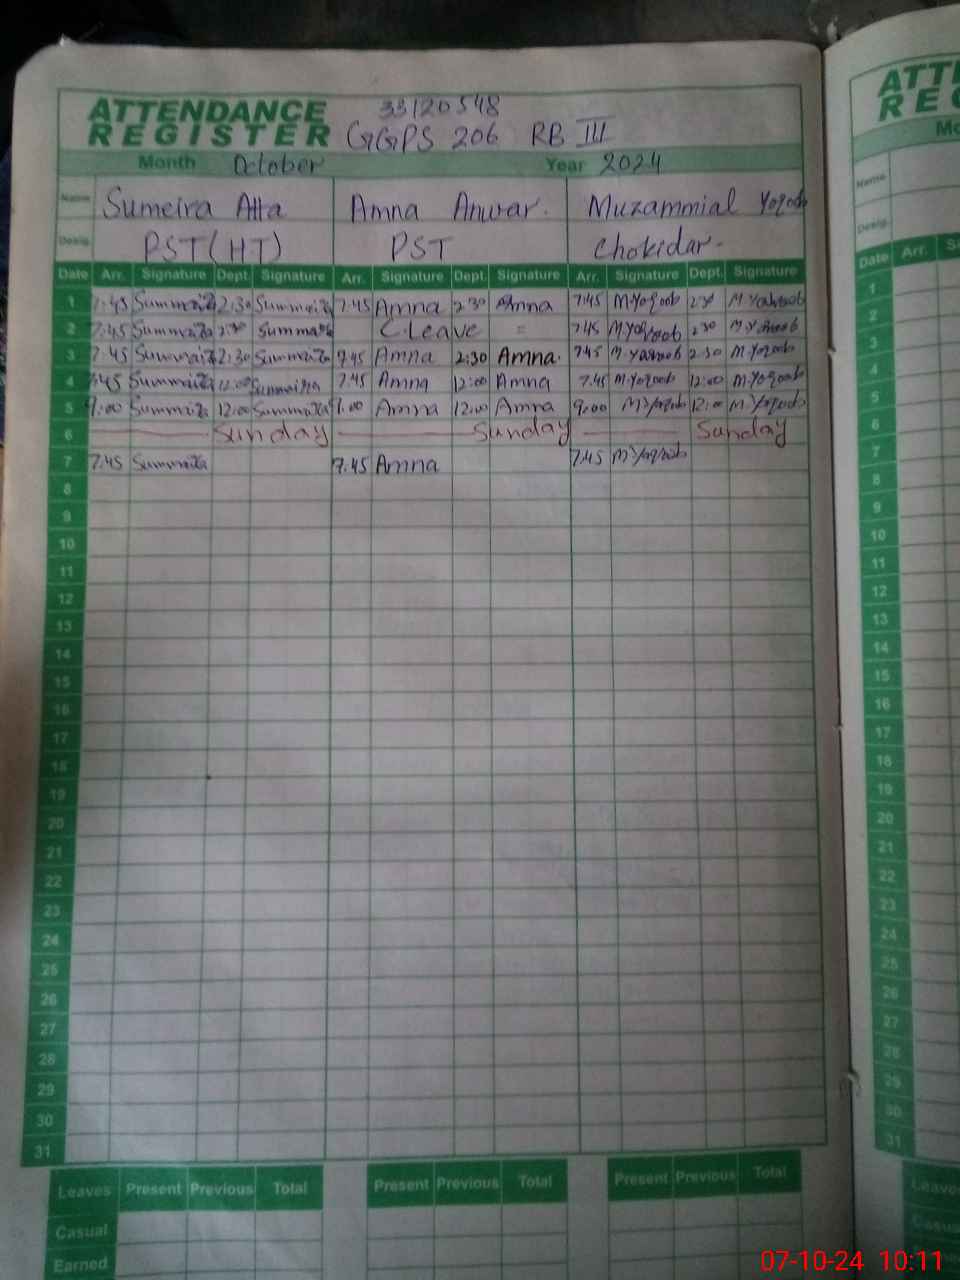 ATTENDANCE REGISTER 33120548
GGPS 206 RB III
Month October Year 2024
Name Sumeira Atta Amna Anwar. Muzammial Yoqoob
Desig. PST(H.T) PST Chokidar.
Date Arr. Signature Dept. Signature Arr. Signature Dept. Signature Arr. Signature Dept. Signature
1 7.45 Summaita 2:30 Summaita 7.45 Amna 2:30 Amna 7.45 M.Yoqoob 2:30 M.Yaqoob
2 7.45 Summaita 2:30 Summaita C.Leave = 7.45 M.Yaqoob 2:30 M.Yaqoob
3 7.45 Summaita 2:30 Summaita 7.45 Amna 2:30 Amna. 7.45 M.Yaqoob 2:30 M.Yoqoob
4 7.45 Summaita 12:00 Summaita 7.45 Amna 12:00 Amna 7.45 M.Yoqoob 12:00 M.Yoqoob
5 9.00 Summaita 12:00 Summaita 9.00 Amna 12:00 Amna 9:00 M.Yaqoob 12:00 M.Yaqoob
6 Sunday Sunday Sunday
7 7.45 Summaita 7.45 Amna 7.45 M.Yaqoob
8
9
10
11
12
13
14
15
16
17
18
19
20
21
22
23
24
25
26
27
28
29
30
31
Leaves Present Previous Total Present Previous Total Present Previous Total
Casual
Earned
ATT
REG
Mo
Name
Desig.
Date Arr. Si
1
2
3
4
5
6
7
8
9
10
11
12
13
14
15
16
17
18
19
20
21
22
23
24
25
26
27
28
29
30
31
Leave
Casu
07-10-24 10:11